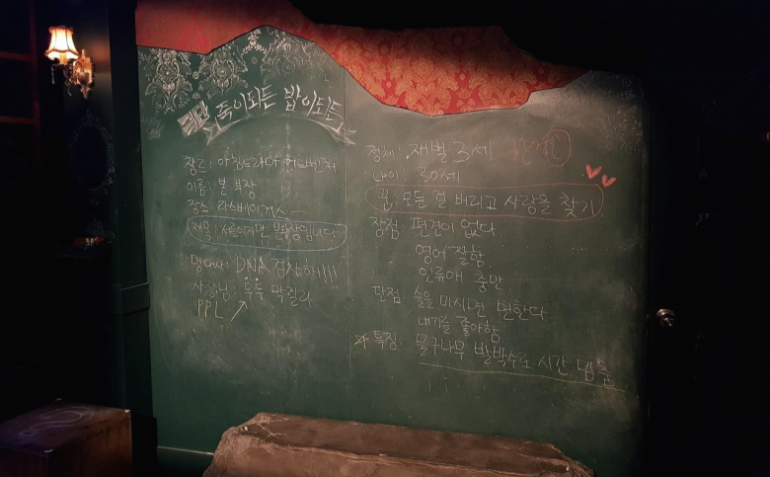 죽이되든 밥이되든
장르: 아침드라마 어드벤쳐
이름: 본 부장
장소: 라스베이거스
제목: 사돈이지만 부탁합니다
명대사: DNA 검사해!!!
사장님: 톡톡 막걸리
PPL
정체: 재벌 3세
나이: 30세
꿈: 모든 걸 버리고 사랑을 찾기
장점: 편견이 없다
영어 잘함
인류애 충만
단점: 술을 마시면 변한다
내기를 좋아함
특징: 물구나무 발박수로 시간 멈춤